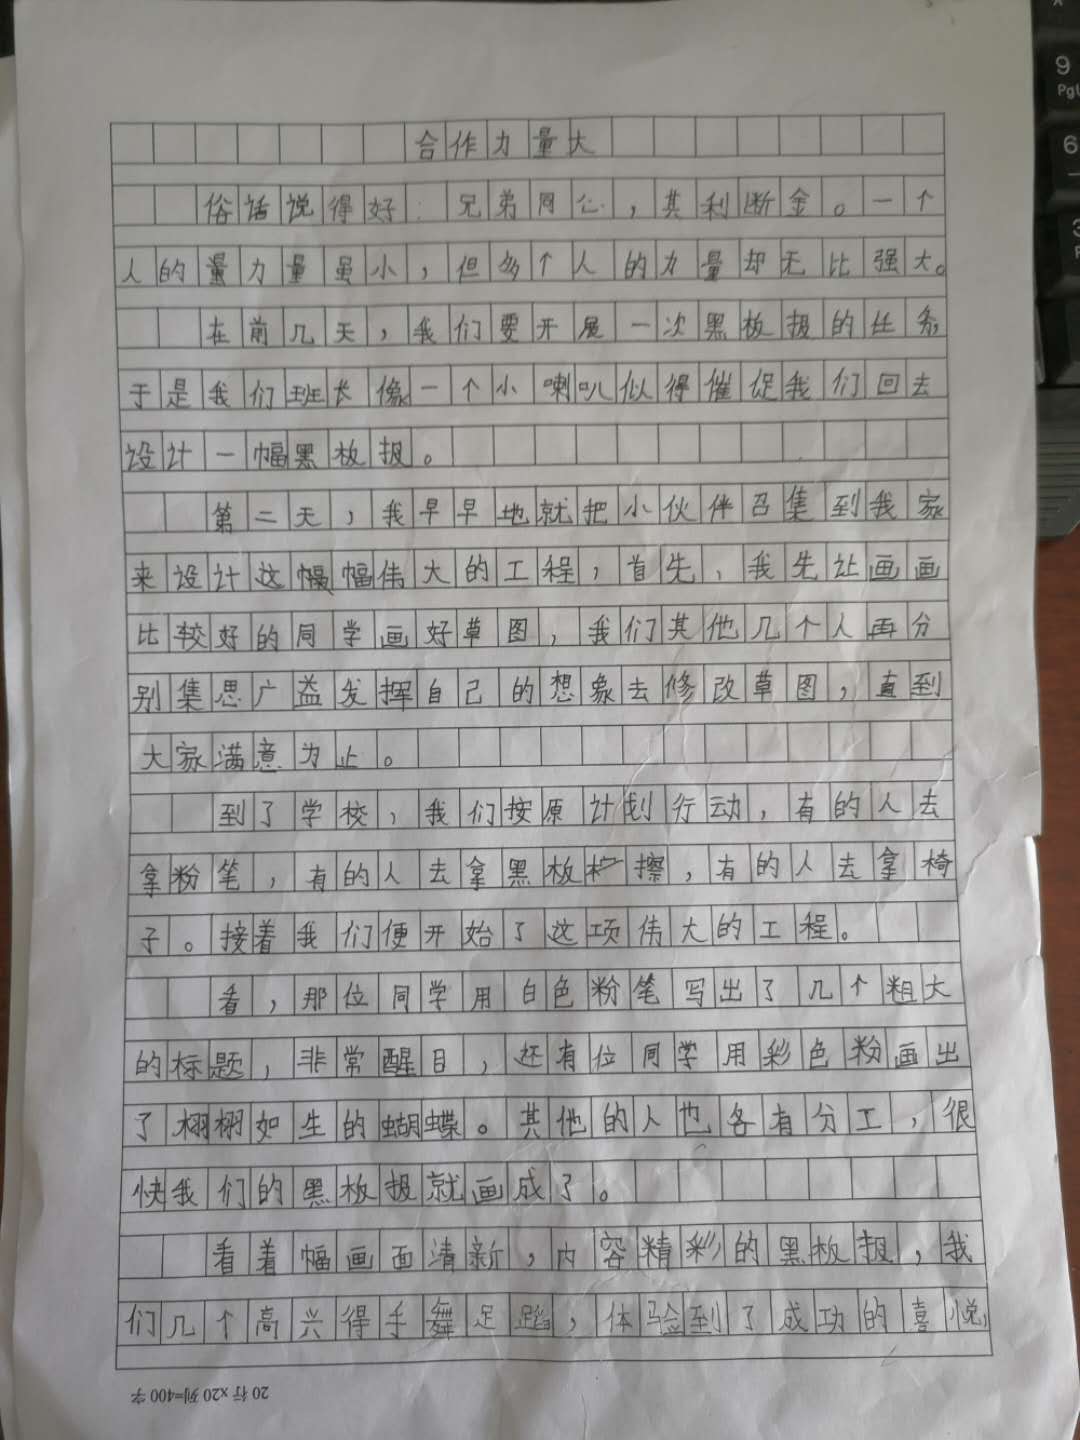 合作力量大
俗话说得好：兄弟同心，其利断金。一个
人的量力量虽小，但多个人的力量却无比强大。
在前几天，我们要开展一次黑板报的任务，
于是我们班长像一个小喇叭似得催促我们回去
设计一幅黑板报。
第二天，我早早地就把小伙伴召集到我家
来设计这幅幅伟大的工程，首先，我先让画画
比较好的同学画好草图，我们其他几个人再分
别集思广益发挥自己的想象去修改草图，直到
大家满意为止。
到了学校，我们按原计划行动，有的人去
拿粉笔，有的人去拿黑板擦，有的人去拿椅
子。接着我们便开始了这项伟大的工程。
看，那位同学用白色粉笔写出了几个粗大
的标题，非常醒目，还有位同学用彩色粉画出
了栩栩如生的蝴蝶。其他的人也各有分工，很
快我们的黑板报就画成了。
看着幅画面清新，内容精彩的黑板报，我
们几个高兴得手舞足蹈，体验到了成功的喜悦，
20行×20列=400字